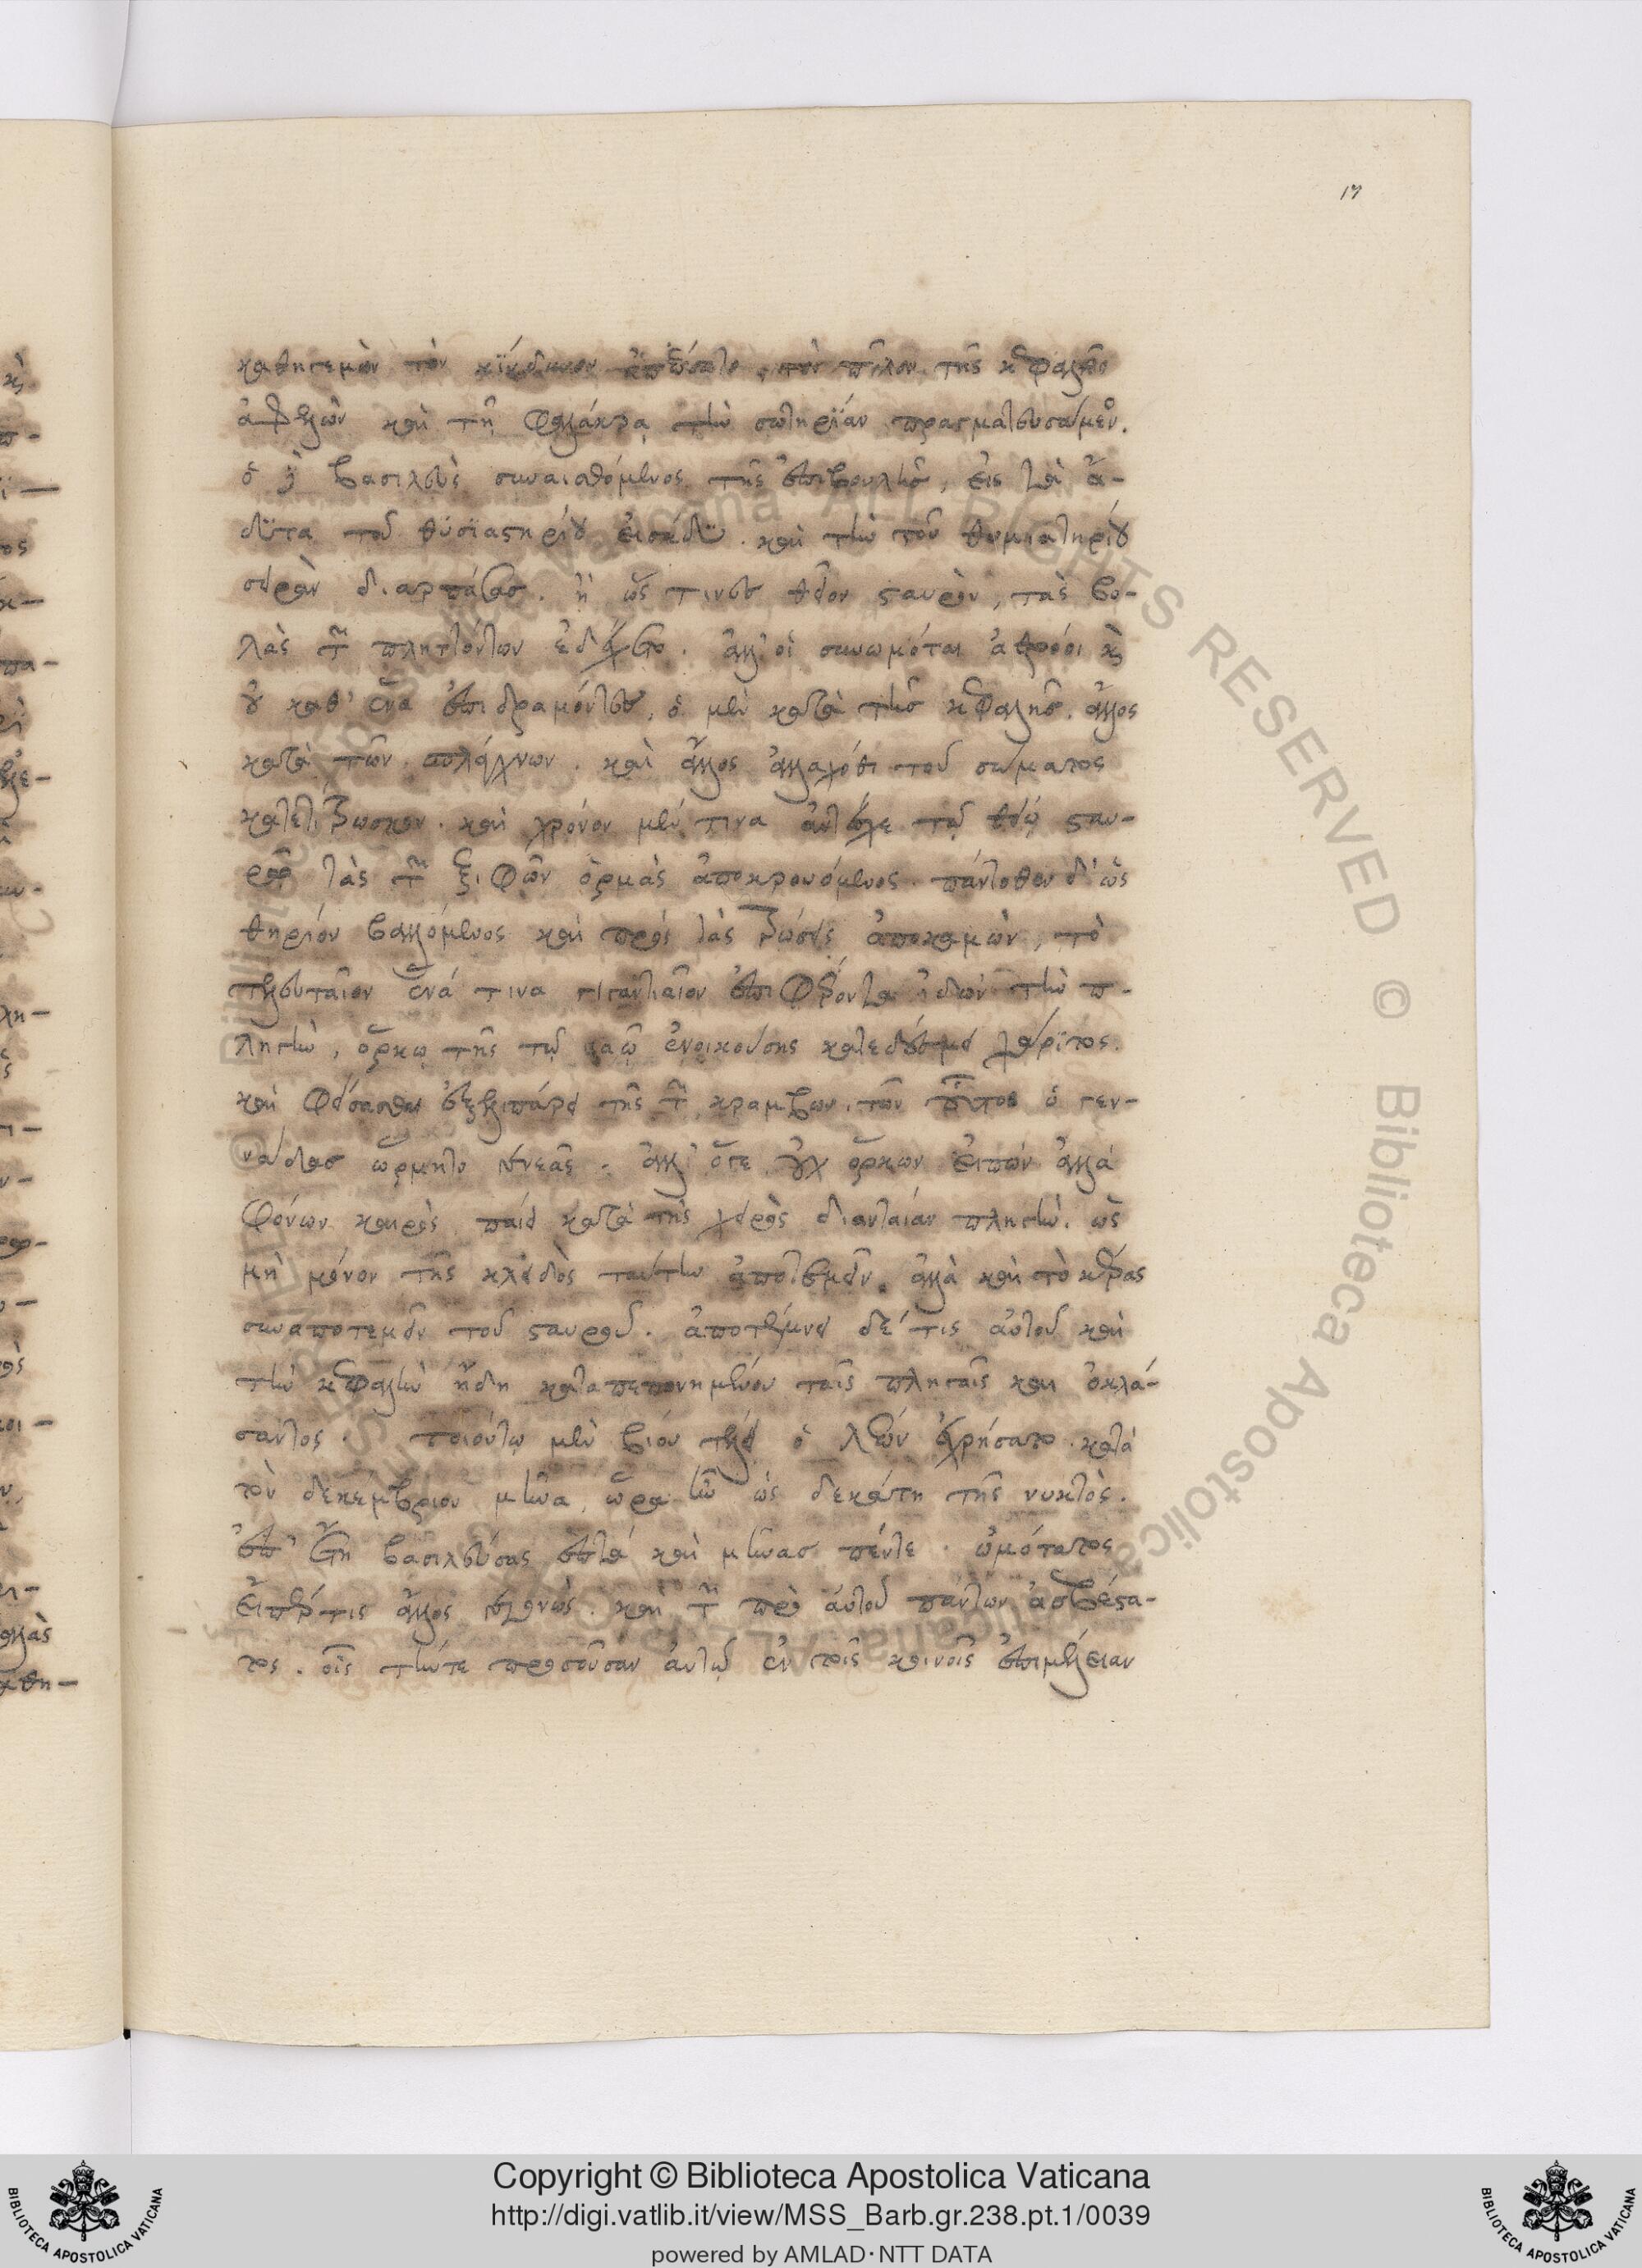 17
καθηγεμὼν τὸν κίνδυνον ἀπεώσατο, τὸν πῖλον τῆς κεφαλῆς
ἀφελὼν καὶ τῇ φαλάκρα τὴν σωτηρίαν πραγματευσάμεν.
ὁ δὲ βασιλεὺς συναισθόμενος τῆς ἐπιβουλῆς, εἰς τὰ ἄ-
δϋτα τοῦ θυσιαστηρίου εἰσέδυ. καὶ τὴν τοῦ θυμιατηρίου
σειρὰν διαρπάσας. ἢ ὥς τινες θεῖον σταυρὸν, τὰς βο-
λὰς τῶν πληττόντων ἐδέχετο. ἀλλ' οἱ συνωμόται ἀθρόοι καὶ
οὐ καθ' ἕνα ἐπιδραμόντες, ὁ μὲν κατὰ τῆς κεφαλῆς. ἄλλος
κατὰ τῶν σπλάγχνων. καὶ ἄλλος ἀλλαχόθι τοῦ σώματος
κατετίτρωσκον. καὶ χρόνον μέν τινα ἀντέσχε τῷ θείῳ σταυ-
ρῷ τὰς τῶν ξιφῶν ὁρμὰς ἀποκρουόμενος. πάντοθεν δ' ὡς
θηρίον βαλλόμενος καὶ πρὸς τὰς τρώσεις ἀποκαμὼν, τὸ
τελευταῖον ἕνά τινα γιγαντιαῖον ἐπιφέροντα ἰδὼν τὴν π-
ληγὴν, ὅρκῳ τῆς τῷ ναῷ ἐνοικούσης κατεδυσώπει χάριτος.
καὶ φείσασθαι ἐξελιπάρει τῆς τῶν κραμβων. τῶν οὗτος ὁ γεν-
νάδας ὥρμητο γενεᾶς. ἀλλ' ὅγε οὐχ ὅρκων εἰπὼν ἀλλὰ
φόνων καιρὸς παίει κατὰ τῆς χειρὸς διανταίαν πληγὴν. ὡς
μὴ μόνον τῆς κλειδὸς ταύτην ἀποτεμεῖν. ἀλλὰ καὶ τὸ κέρας
συναποτεμεῖν τοῦ σταυροῦ. ἀποτέμνει δέ τις αὐτοῦ καὶ
τὴν κεφαλὴν ἤδη καταπεπονημένου ταῖς πληγαῖς και ὀκλά-
σαντος. τοιούτῳ μὲν βίου τέλει ὁ λέων ἐχρήσατο. κατὰ
τὸν δεκέμβριον μῆνα, ὥρα ἦν ὡς δεκάτη τῆς νυκτὸς.
ἐπ' ἔτη βασιλεύσας ἑπτὰ καὶ μῆνας πέντε. ὠμότατος
εἴπερ τις ἄλλος γεγονὼς. καὶ τῶν πρὸ αὐτοῦ πάντων ἀσεβέστα-
τος. οἷς τήν τε προσοῦσαν αὐτῷ ἐν τοῖς κοινοῖς ἐπιμέλειαν
Copyright © Biblioteca Apostolica Vaticana
http://digi.vatlib.it/view/MSS_Barb.gr.238.pt.1/0039
powered by AMLAD·NTT DATA